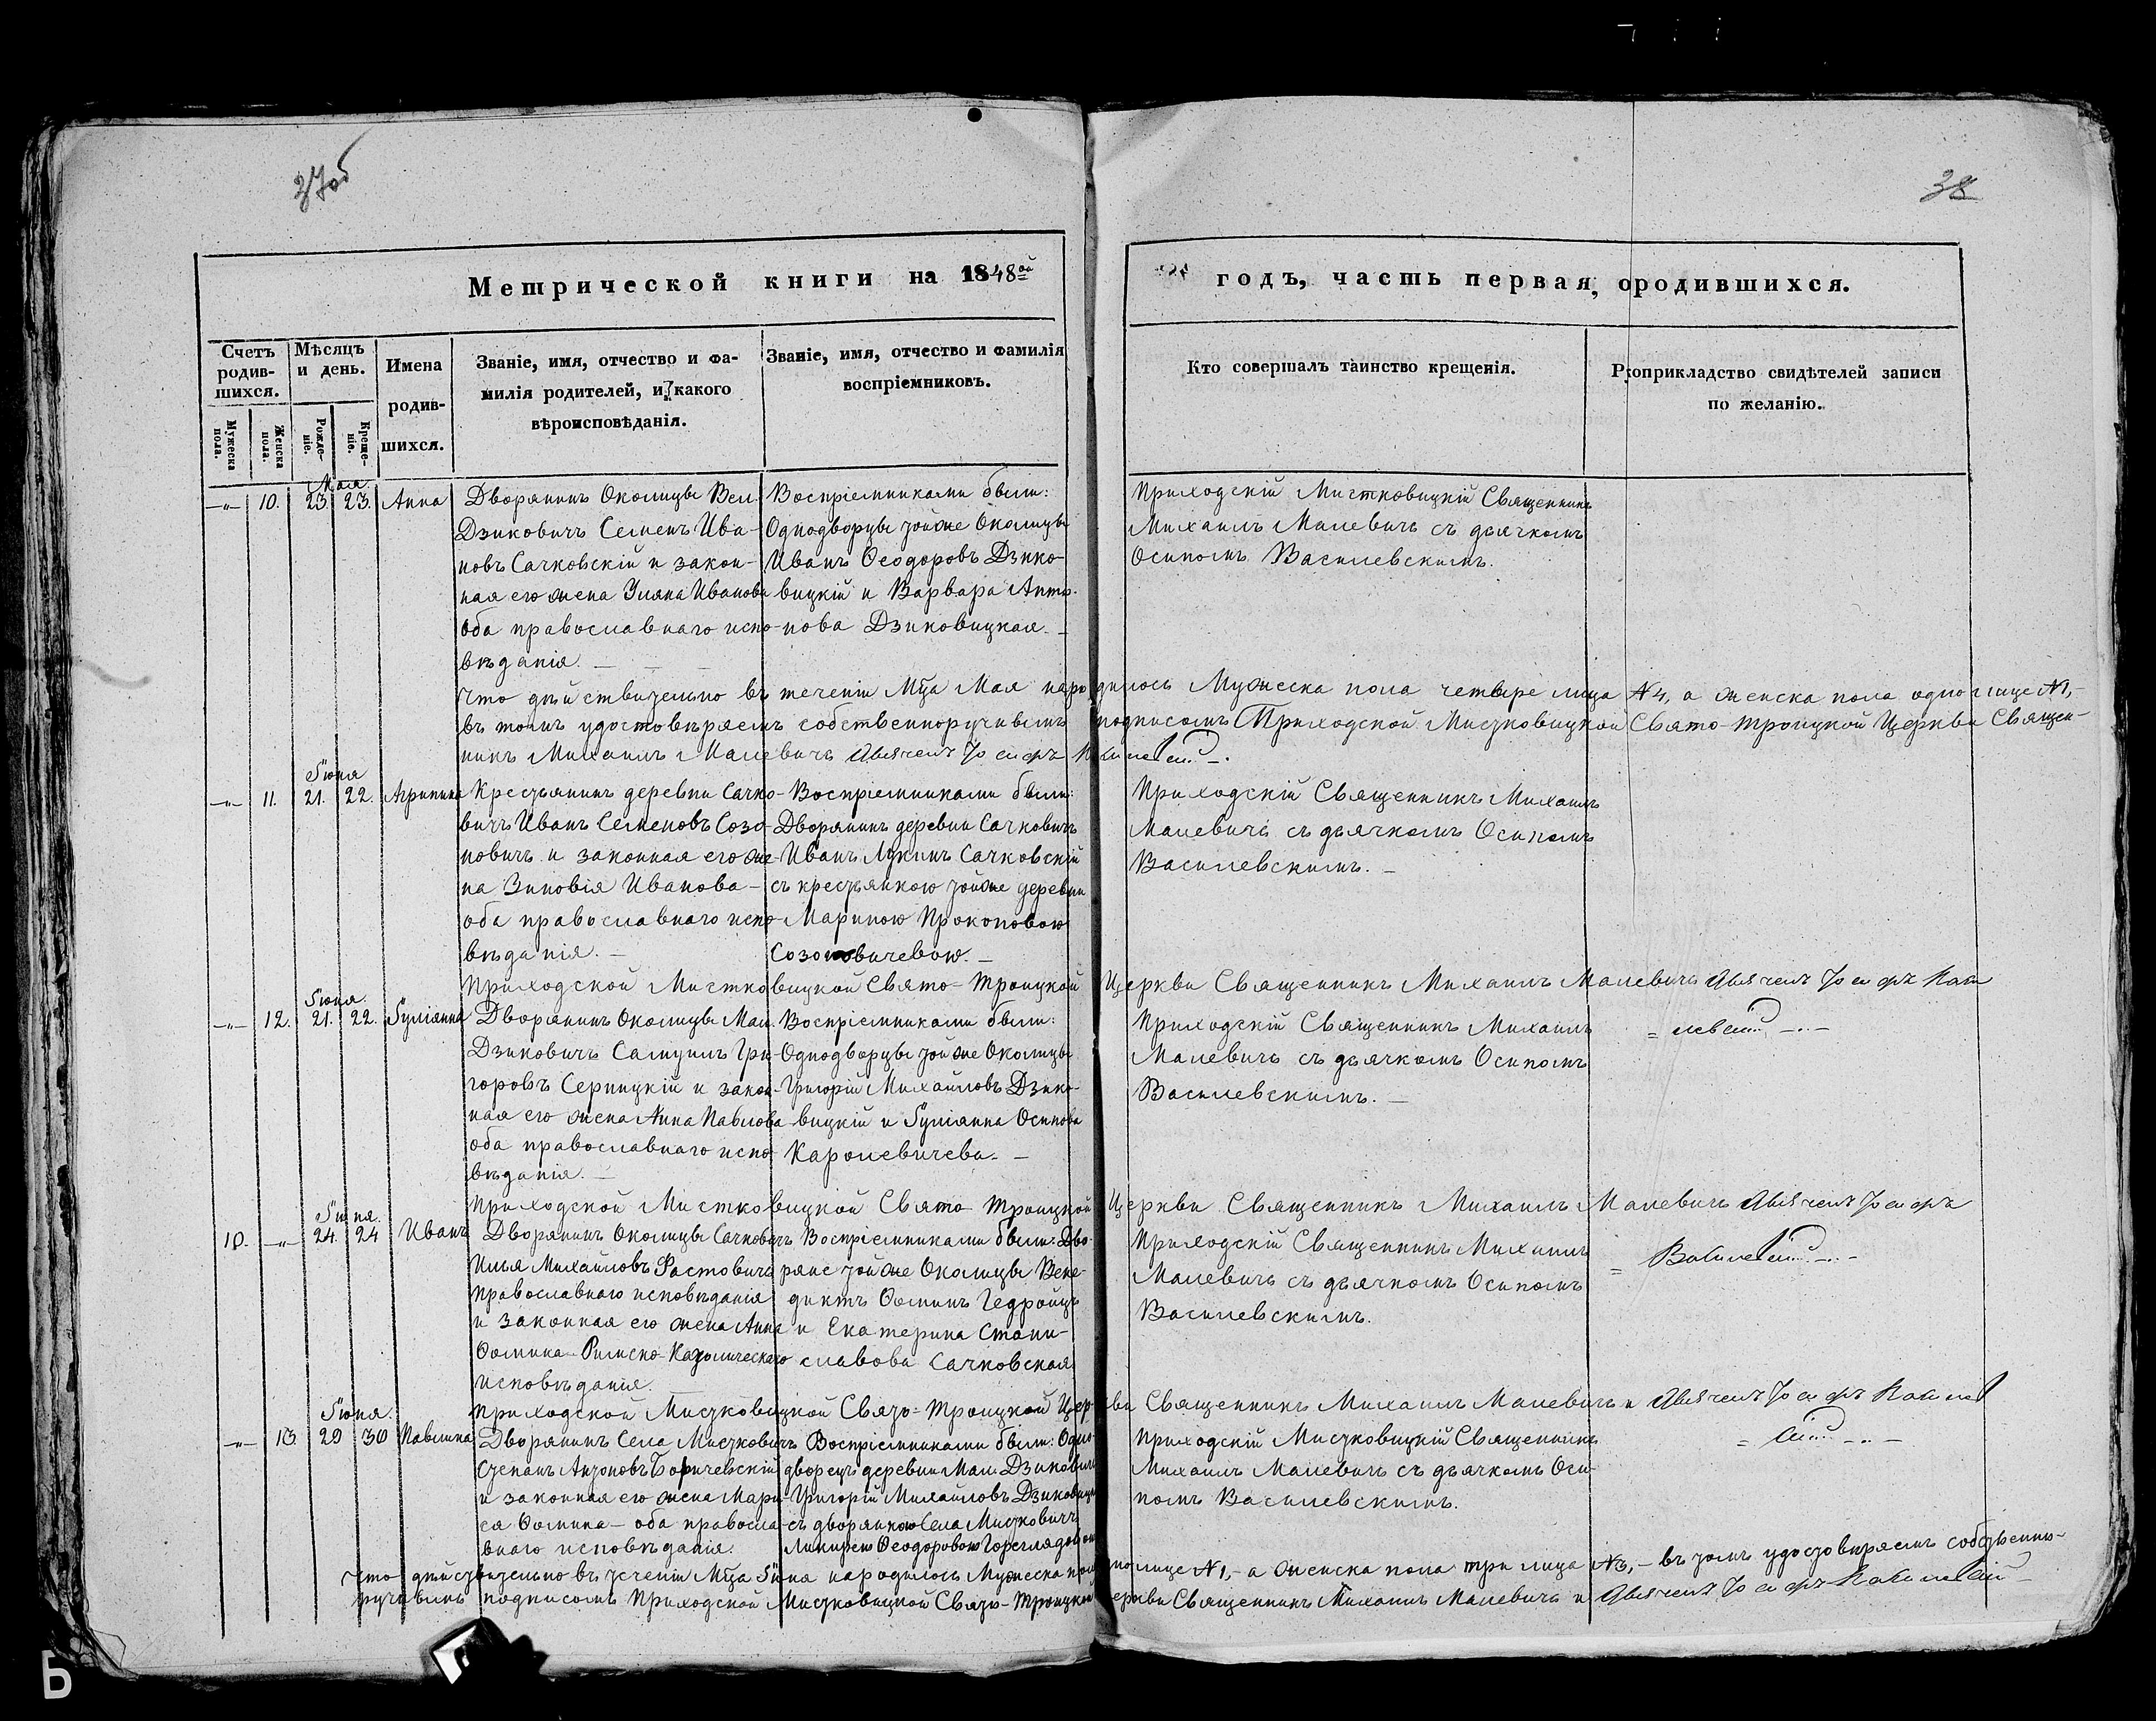 37об
38
Метрической книги на 1848ой
годъ, часть первая, о родившихся.
Счетъ родив-
шихся.
Мужеска пола.
Женска пола.
Мѣсяцъ
и день.
Рожде-
ніе.
Креще-
ніе.
Имена
родив-
шихся.
Званіе, имя, отчество и фа-
милія родителей, и какого
вѣроисповѣданія.
Званіе, имя, отчество и фамилія
воспріемниковъ.
Кто совершалъ таинство крещенія.
Рукоприкладство свидѣтелей записи
по желанію.
Мая
—„— 10. 23. 23. Анна
Дворянинъ Околицы Вел.
Дзиковичъ Семенъ Ива-
новъ Сачковскій и закон-
ная его жена Уляна Иванова
оба православнаго испо-
вѣданія.
Воспріемниками были:
Однодворцы тойже Околицы
Иванъ Ѳеодоровъ Дзико-
вицкій и Варвара Анто-
нова Дзиковицкая.
Приходскій Мистковицкій Священникъ
Михаилъ Малевичъ съ дьячкомъ
Осипомъ Василевскимъ.
Что дѣйствительно въ теченіи Мца Мая народилось Мужеска пола четыре лица №4, а женска пола одно лице №1,-
въ томъ удостовѣряемъ собственноручнымъ подписомъ Приходской Мистковицкой Свято-Троицкой Церкви Священ-
никъ Михаилъ Малевичъ Дьячекъ Іосифъ Василевскій
Іюня
—„— 11. 21. 22. Агрипина
Крестьянинъ деревни Сачко-
вичъ Иванъ Семеновъ Созо-
новичъ и законная его же-
на Зиновія Иванова —
оба православнаго испо-
вѣданія. —
Воспріемниками были:
Дворянинъ деревни Сачковичъ
Иванъ Лукинъ Сачковскій
съ крестьянкою тойже деревни
Мариною Прокоповою
Созоновичевою. —
Приходскій Священникъ Михаилъ
Малевичъ съ дьячкомъ Осипомъ
Василевскимъ. —
Приходской Мистковицкой Свято-Троицкой Церкви Священникъ Михаилъ Малевичъ Дьячекъ Іосифъ Васи
= левскій
Іюня.
—„— 12. 21. 22. Іуліанна
Дворянинъ Околицы Мал.
Дзиковичъ Самуилъ Гри-
горовъ Серницкій и закон-
ная его жена Анна Павлова
оба православнаго испо-
вѣданія. —
Воспріемниками были:
Однодворцы тойже Околицы
Григорій Михайловъ Дзико-
вицкій и Іуліанна Осипова
Каролевичева. —
Приходскій Священникъ Михаилъ
Малевичъ съ дьячкомъ Осипомъ
Василевскимъ. —
Приходской Мистковицкой Свято Троицкой Церкви Священникъ Михаилъ Малевичъ Дьячекъ Іосифъ
= Василевскій
Іюня.
10. —„— 24. 24 Иванъ
Дворянинъ Околицы Сачковичъ
Илья Михайловъ Фастовичъ
православнаго исповѣданія
и законная его жена Анна
Ѳомина Римско-Католическаго
исповѣданія.
Воспріемниками были: Дво-
ряне тойже Околицы Вене-
диктъ Ѳоминъ Гедройцъ
и Екатерина Стани-
славова Сачковская
Приходскій Священникъ Михаилъ
Малевичъ съ дьячкомъ Осипомъ
Василевскимъ.
Приходской Мистковицкой Свято-Троицкой Церкви Священникъ Михаилъ Малевичъ и Дьячекъ Іосифъ Василев
= скій
Іюня.
—„— 13. 29 30 Павлина
Дворянинъ Села Мистковичъ
Степанъ Антоновъ Боричевскій
и законная его жена Мари-
ся Ѳомина — оба правосла-
внаго исповѣданія.
Воспріемниками были: Одно-
дворецъ деревни Мал. Дзиковичъ
Григорій Михайловъ Дзиковицкій
съ дворянкою Села Мистковичъ
Ѳеодоровою
Приходскій Мистковицкій Священникъ
Михаилъ Малевичъ съ дьячкомъ Оси-
помъ Василевскимъ.
Что дѣйствительно въ теченіи Мца Іюня народилось Мужеска пола одно лице №1,- а женска пола три лица №3,- въ томъ удостовѣряемъ собственно-
ручнымъ подписомъ Приходской Мистковицкой Свято-Троицкой Церкви Священникъ Михаилъ Малевичъ и Дьячекъ Іосифъ Василевскій
Б